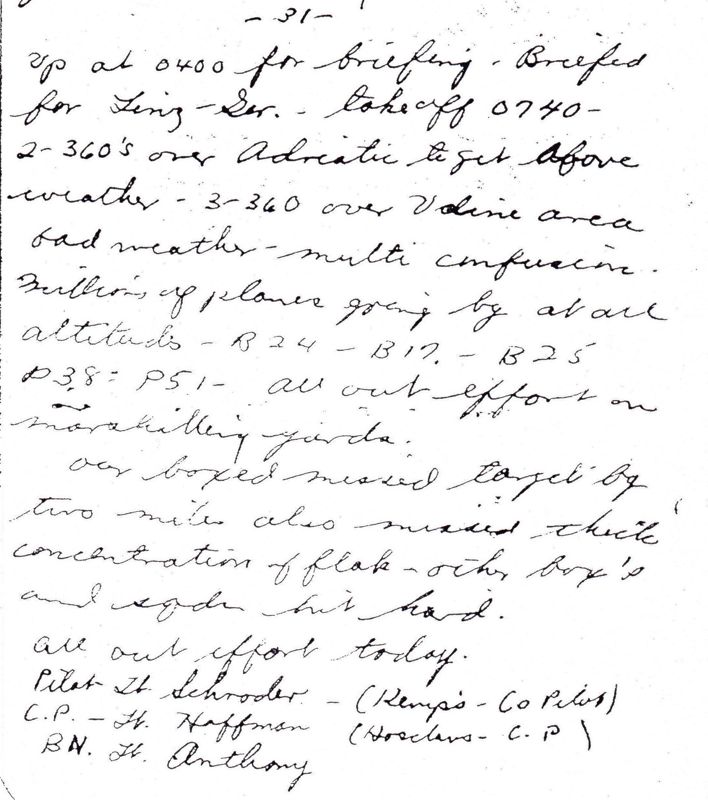 -31-
Up at 0400 for briefing - Briefed
for Linz - Ger. - takeoff 0740-
2-360's over Adriatic to get above
weather - 3-360 over Udine area
bad weather - multi confusion.
Millions of planes going by at all
altitudes - B24 - B17. - B25
P38: P51- all out effort on
marshalling yards.
our boxed missed target by
two miles also missed thick
concentration of flak - other box's
and sqdn hit hard.
all out effort today.
Pilot Lt Schroder - (Kemp's - Co Pilot)
C.P. - Lt. Hoffman ( - C.P)
BN. Lt. Anthony